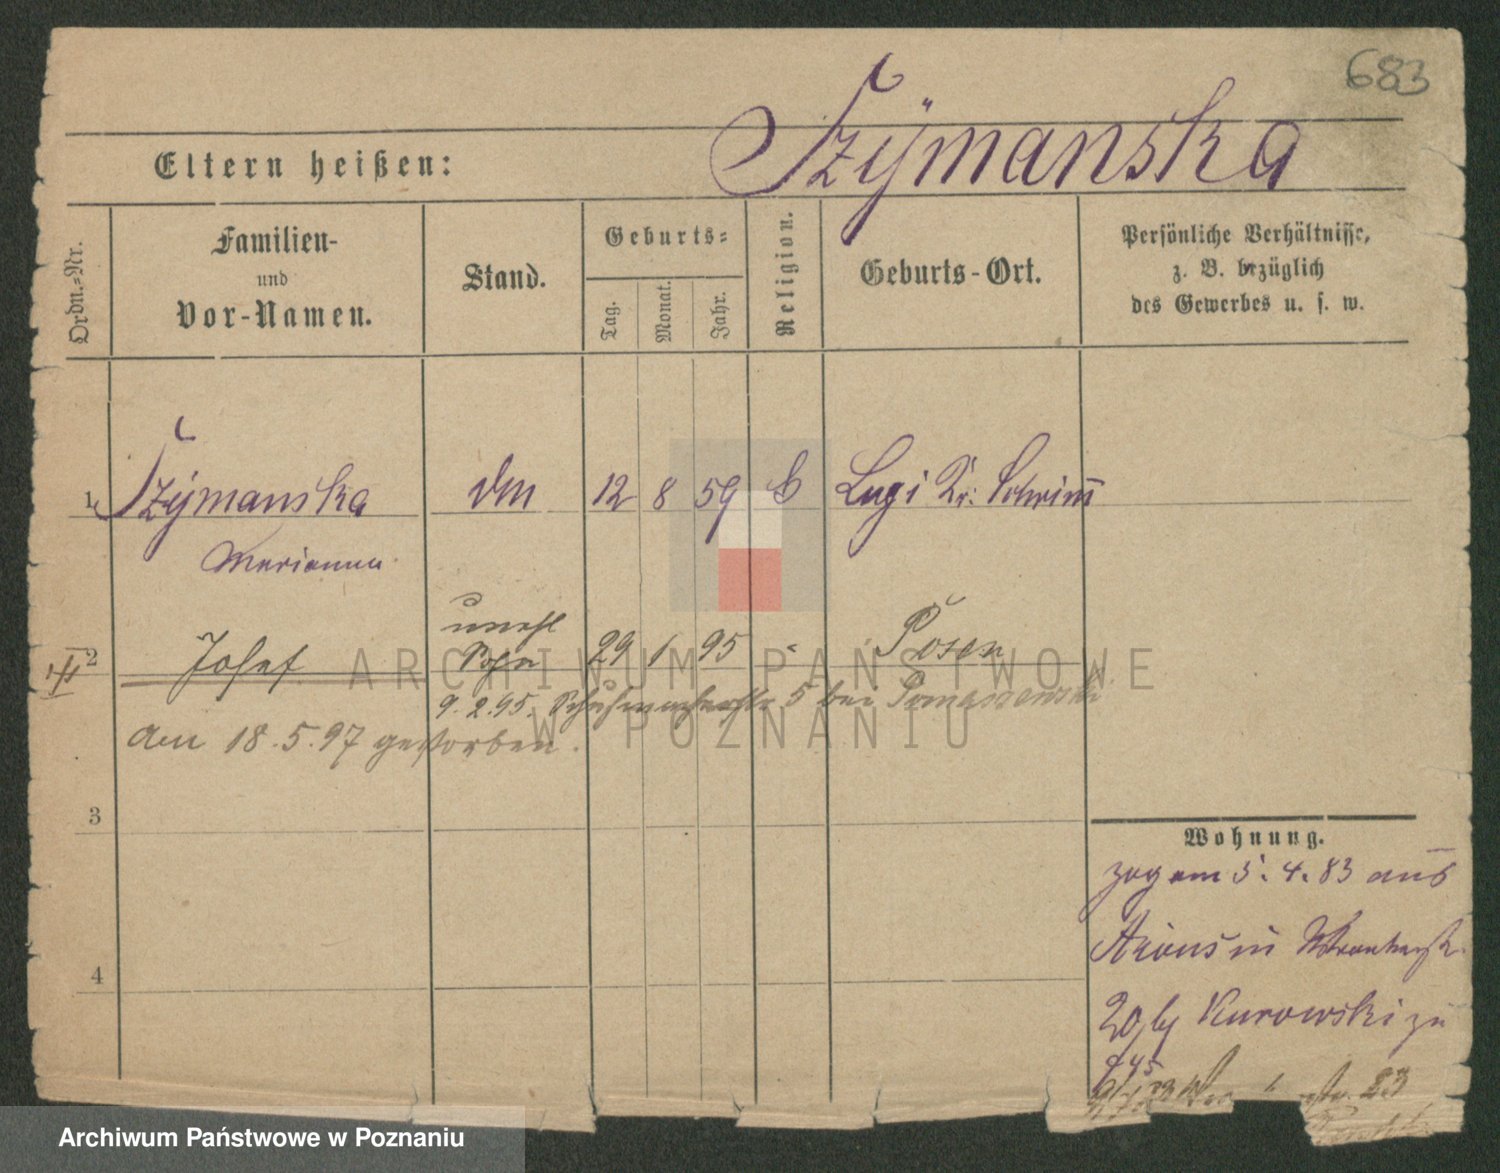 683
Szÿmanska
Eltern heißen:
Ordn.-Nr.
Familien-
und
Vor-Namen.
Stand.
Geburts-
Tag.
Monat.
Jahr.
Religion.
Geburts-Ort.
Persönliche Verhältnisse,
z. B. bezüglich
des Gewerbes u. s. w.
1 Szÿmanska 12 8 59 Lugi Kr: Schrimm
Marianna
unehl
2 Josef Sohn 29 1 95 - Posen
9.2.95. 5 bei Tomaszewski
am 18.5.97 gestorben.
3
4
Wohnung.
zog am 5.4.83 aus
in
20 bei Kurowski zu
23
ARCHIWUM PAŃSTWOWE
W POZNANIU
Archiwum Państwowe w Poznaniu